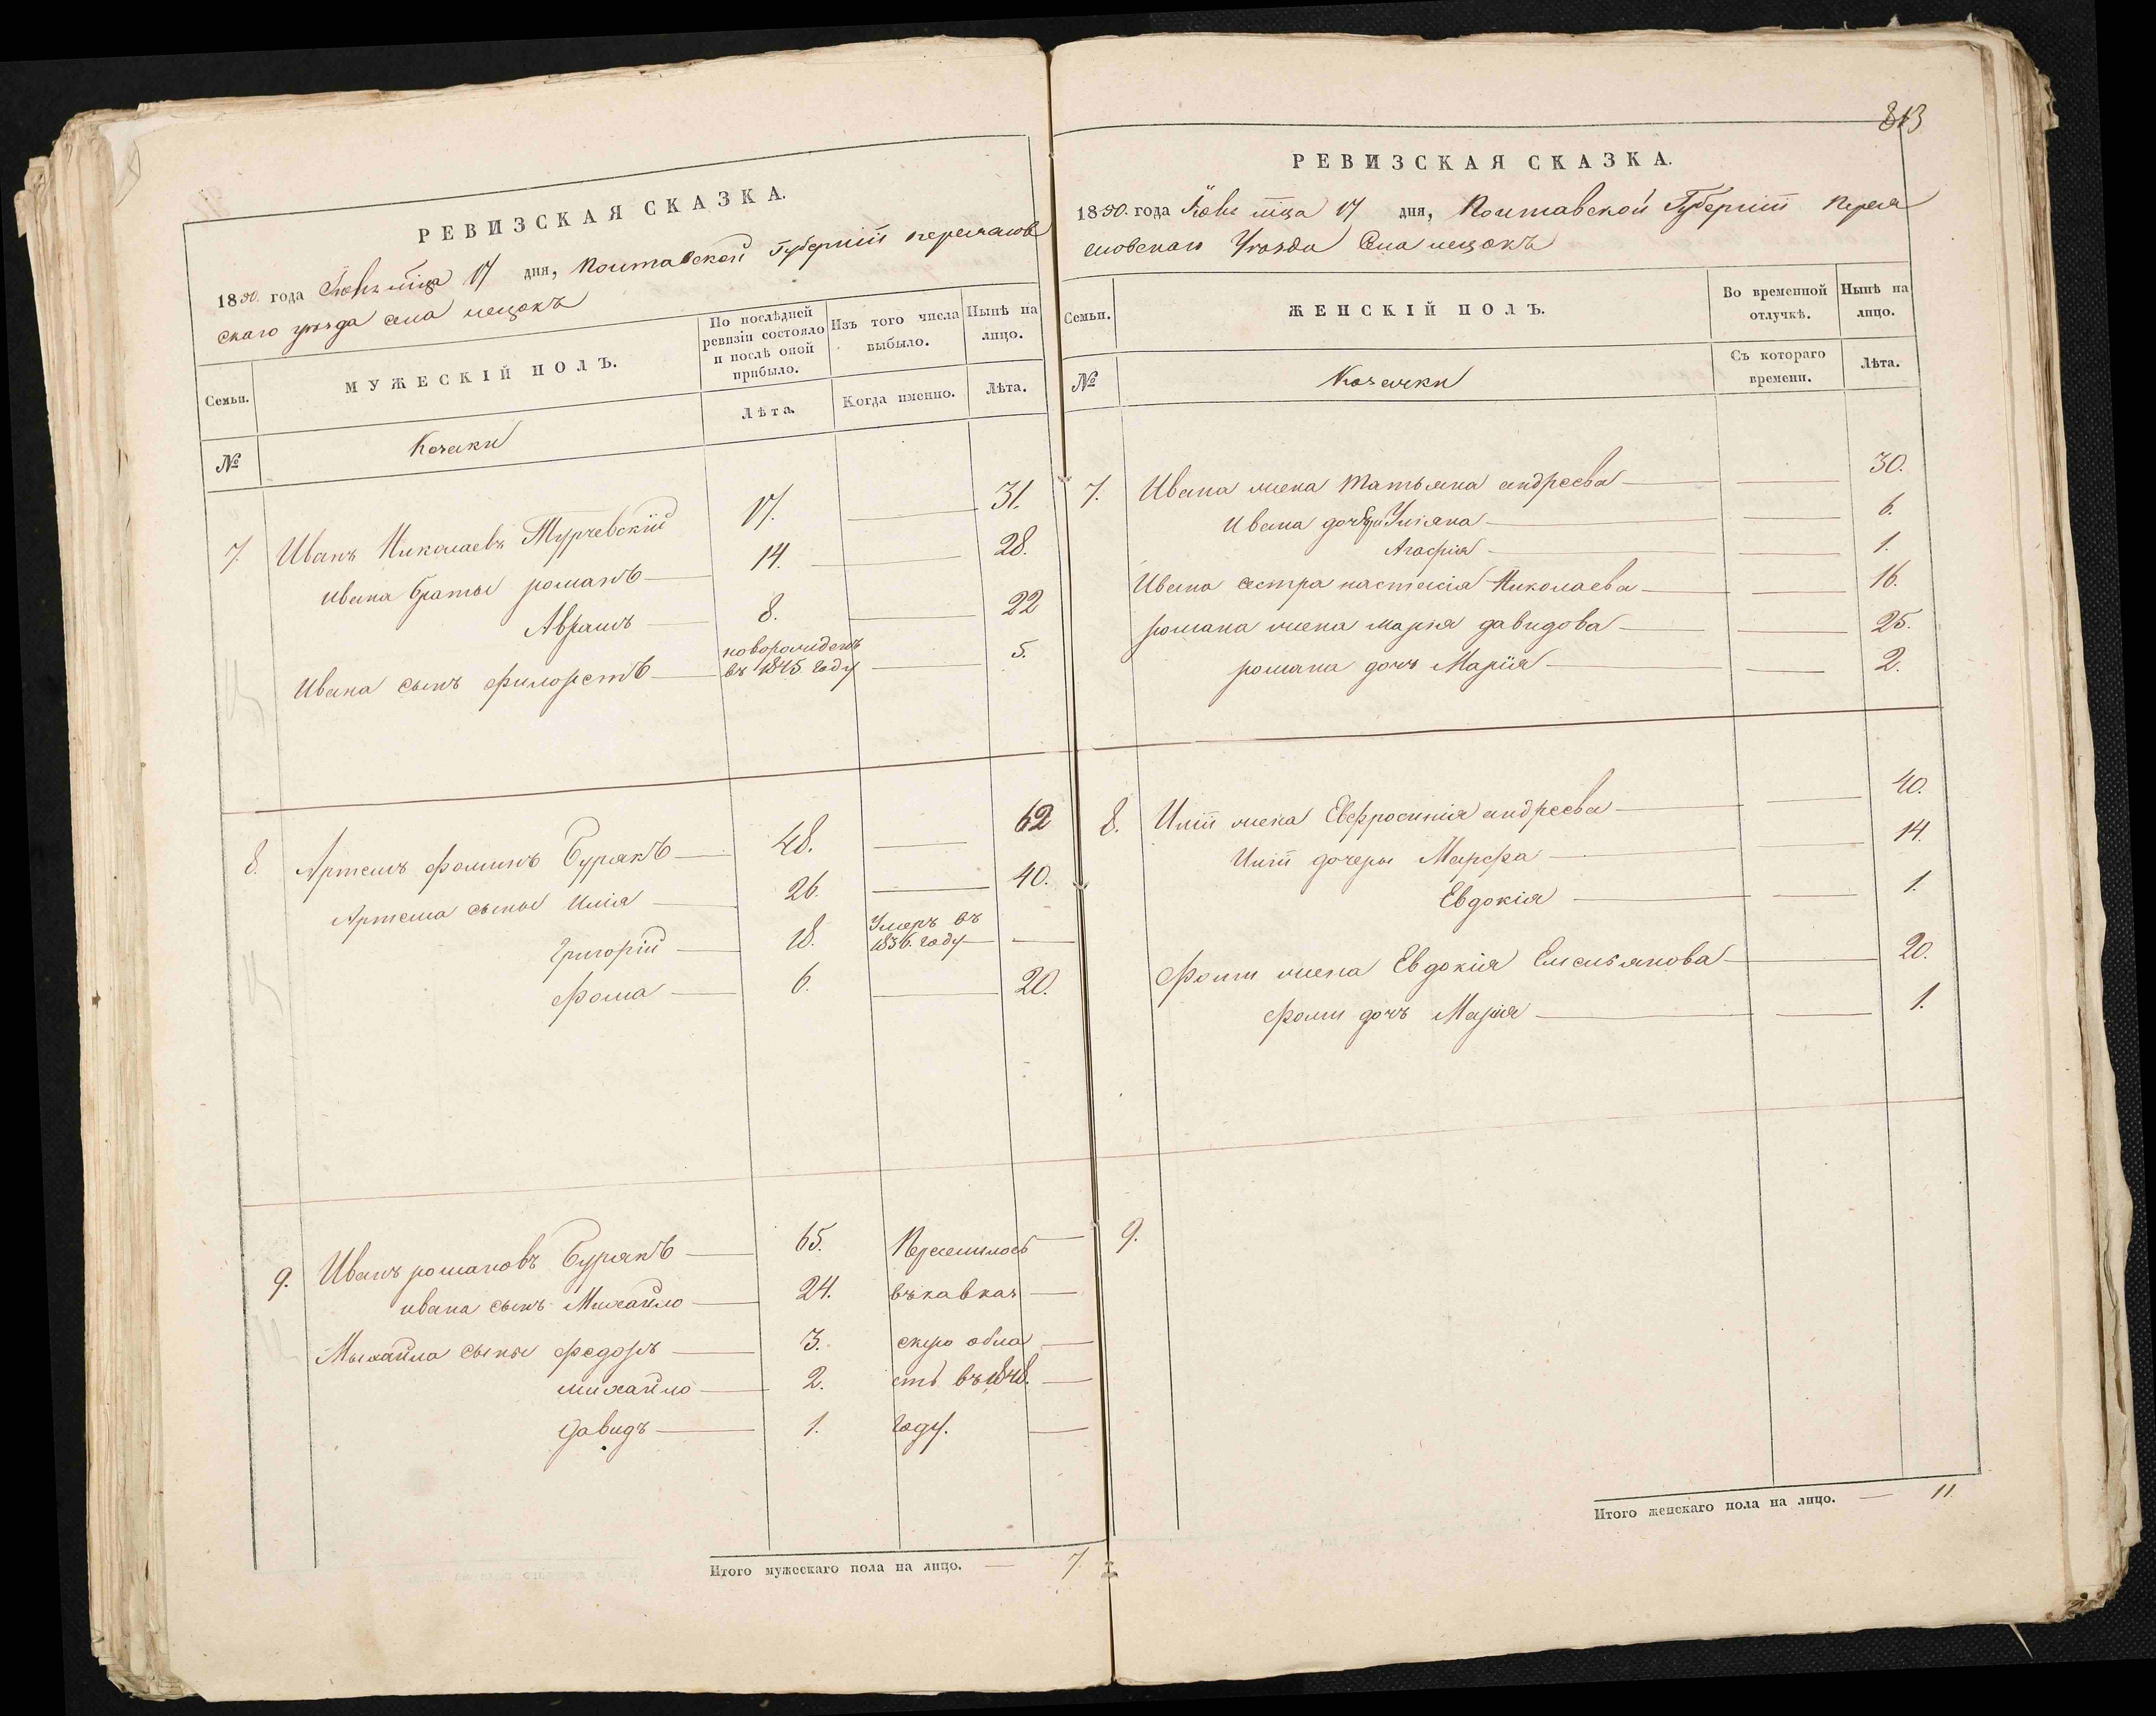 РЕВИЗСКАЯ СКАЗКА.
1850. года Июнь мца 17 дня, Полтавской Губерніи переяслов
скаго уезда села
Семьи.
МУЖЕСКІЙ ПОЛЪ.
По послѣдней ревизіи состояло и послѣ оной прибыло.
Изъ того числа выбыло.
Нынѣ на лицо.
№
Козаки
Лѣта.
Когда именно.
Лѣта.
7. Иванъ Николаевъ Турчевскій 17. 31.
ивана братья романъ 14. 28.
Аврамъ 8. 22
Ивана сынъ филоретъ новорожденъ въ 1845 году 5.
8. Артемъ фоминъ Бурякъ 48. 62
Артема сыны Илія 26. 40.
Григорій 18. Умеръ въ 1836. году
фома 6. 20.
9. Иванъ романовъ Бурякъ 65. Переселилось
ивана сынъ Михайло 24. въ кавказ
Михайла сыны федоръ 3. скую обла
михайло 2. сть въ 1848.
давидъ 1. году.
Итого мужескаго пола на лицо. 7.
813
РЕВИЗСКАЯ СКАЗКА.
1850. года Июнь мца 17 дня, Полтавской Губерніи Перея
словскаго Уезда Села
Семьи.
ЖЕНСКІЙ ПОЛЪ.
Во временной отлучкѣ.
Нынѣ на лицо.
№
Козачки
Съ котораго времени.
Лѣта.
7. Ивана жена татьяна андреева 30.
Ивана дочери Уліяна 6.
Агафія 1.
Ивана сестра настасія Николаева 16.
романа жена марія давидова 25.
романа дочь Марія 2.
8. Иліи жена Евфросинія андреева 40.
Иліи дочеры Марфа 14.
Евдокія 1.
Фоми жена Евдокія Емельянова 20.
фоми дочъ Марія 1.
9.
Итого женскаго пола на лицо. 11.